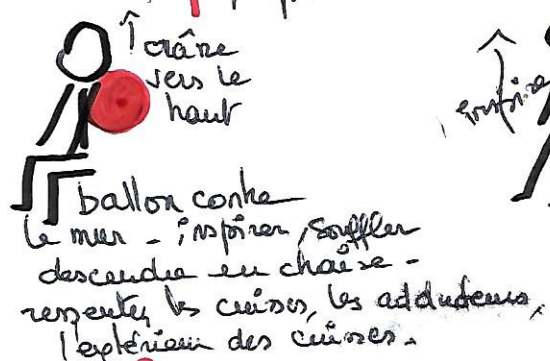 crâne
vers le
haut
inspire
ballon contre
le mur - inspirer, souffler
descendre en chaise -
ressentez les cuisses, les adducteurs,
l'extérieur des cuisses.